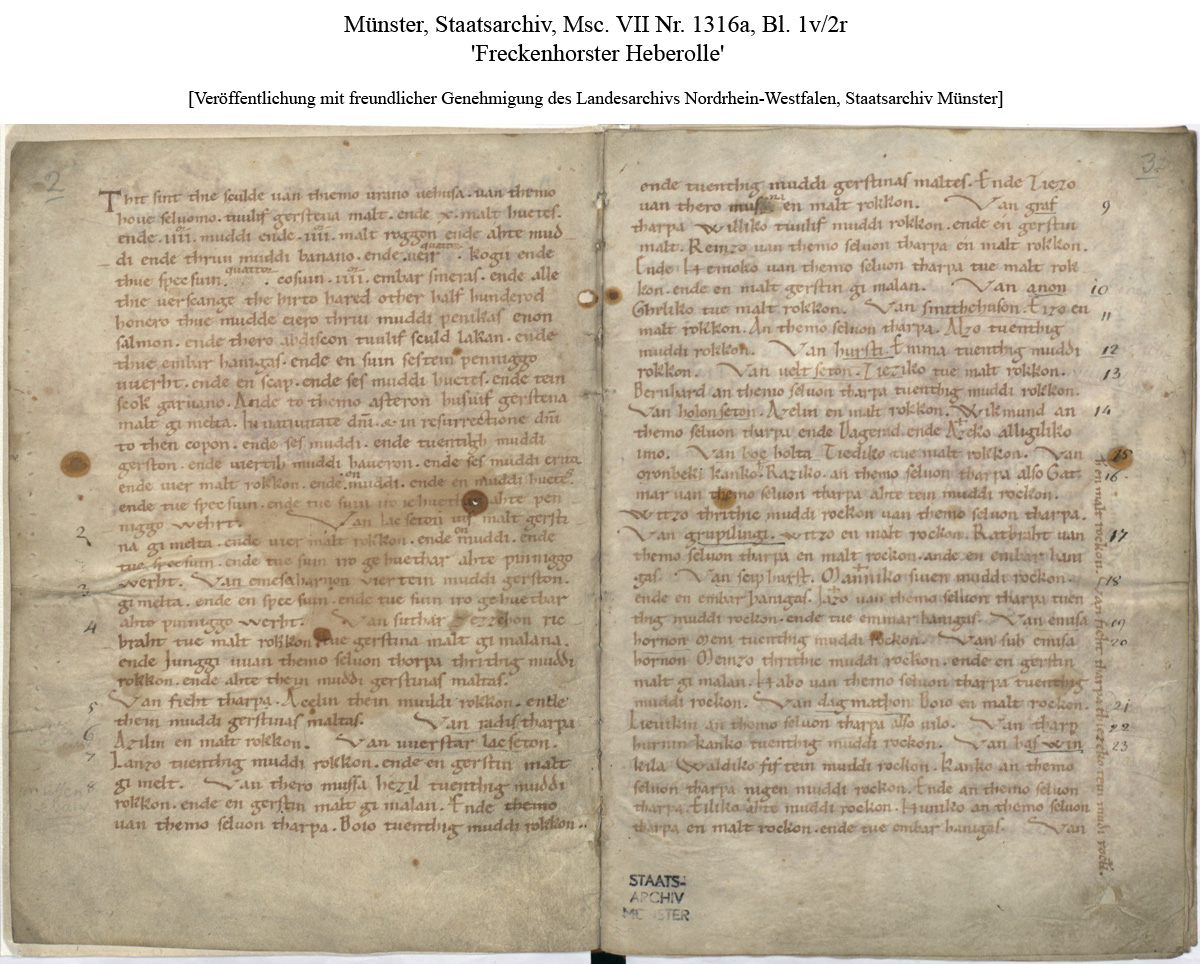 Münster, Staatsarchiv, Msc. VII Nr. 1316a, Bl. 1v/2r
'Freckenhorster Heberolle'
[Veröffentlichung mit freundlicher Genehmigung des Landesarchivs Nordrhein-Westfalen, Staatsarchiv Münster]
2
Thit sint thie sculde uan thiemo urano uehusa. uan themo
houe seluomo. tuulif gerstena malt. ende x. malt huetes.
ende. iiii. muddi ende. iiii. malt roggon ende ahte mud
di ende thruu muddi banano. ende. ueir quattuor. kogii ende
thue specsuin. quattuor. cosuin. iiii. embar smeras. ende alle
thie uerscange the hirto hared other half hunderod
honero thue mudde eiero thriu muddi penikas enon
salmon. ende thero abdiscon tuulif sculd lakan. ende
thue embar hanigas. ende en suin sestein penniggo
uuerht. ende en scap. ende ses muddi huetes. ende tein
scok garuano. Ande to themo asteron husuif gerstena
malt gi melta. In natiuitate dni. & in resurrectione dni
to then copon. ende ses muddi. ende tuentihg muddi
gerston. ende uiertih muddi haueron. ende ses muddi erito
ende uier malt rokkon. ende. en muddi. ende en muddi huetes.
ende tue specsuin. ende tue suin iro gehuethar ahte pen
niggo wehrt. Van lacseton uif malt gersti
2
na gi melta. ende uier malt rokkon. ende en muddi. ende
tue specsuin. ende tue suin iro gehuethar ahte pinniggo
werht. Van emesaharnon uiertein muddi gerston.
3
gi melta. ende en specsuin. ende tue suin iro gehuethar
ahto pinniggo werht. Van suthar Eezzehon ric
4
braht tue malt rokkon. tue gerstina malt gi malana.
ende Junggi uuan themo seluon thorpa thrithig muddi
rokkon. ende ahte thein muddi gerstinas maltas.
Van ficht tharpa. Acelin thein muddi rokkon. ende
5
thein muddi gerstinas maltas. Van radistharpa
6
Azilin en malt rokkon. Van uuerstar lacseton.
7
Lanzo tuenthig muddi rokkon. ende en gerstin malt
gi melt. Van thero mussa hezil tuenthig muddi
8
rokkon. ende en gerstin malt gi malan. Ende themo
uan themo seluon tharpa. Boio tuenthig muddi rokkon.
3.
ende tuenthig muddi gerstinas maltes. Ende Tiezo
uan thero mussa en malt rokkon. Van graf
9
tharpa Williko tuulif muddi rokkon. ende en gerstin
malt. Reinzo uan themo seluon tharpa en malt rokkon.
Ende Hemoko uan themo seluon tharpa tue malt rok
kon. ende en malt gerstin gi malan. Van anon
10
Ghrliko tue malt rokkon. Van smitthehuson. Eizo en
11
malt rokkon. An themo seluon tharpa. Alzo tuenthig
muddi rokkon. Van hursti. Emma tuenthig muddi
12
rokkon. Van ueltseton. Tieziko tue malt rokkon.
13
Bernhard an themo seluon tharpa tuenthig muddi rokkon.
Van holonseton. Azelin en malt rokkon. Wikmund an
14
themo seluon tharpa ende Dagerad. ende Azeko alligiliko
imo. Van boc holta Tiediko tue malt rokkon. Van
15
oronbeki kanko. Raziko. an themo seluon tharpa also Gat
16
mar uan themo seluon tharpa ahte tein muddi rockon.
Witzo thrithie muddi rockon uan themo seluon tharpa.
Van grupilingi. witzo en malt rockon. Ratbraht uan
17
themo seluon tharpa en malt rockon. ande en embar hani
gas. Van sciphurst. Manniko siuen muddi rockon.
18
ende en embar hanigas. Jazo uan themo seluon tharpa tuen
thig muddi rockon. ende tue emmar hanigas. Van emisa
19
hornon Meni tuenthig muddi rockon. Van suth emisa
20
hornon Meinzo thrithie muddi rockon. ende en gerstin
malt gi malan. Habo uan themo seluon tharpa tuenthig
muddi rockon. Van dagmathon Boio en malt rockon.
21
Lieuikin an themo seluon tharpa also uilo. Van tharp
22
hurnin kanko tuenthig muddi rockon. Van haswin
23
kila Waldiko fiftein muddi rockon. Kanko an themo
seluon tharpa nigen muddi rockon. Ende an themo seluon
tharpa. Eiliko ahte muddi rockon. Huniko an themo seluon
tharpa en malt rockon. ende tue embar hanigas. Van
STAATS-
ARCHIV
MÜNSTER